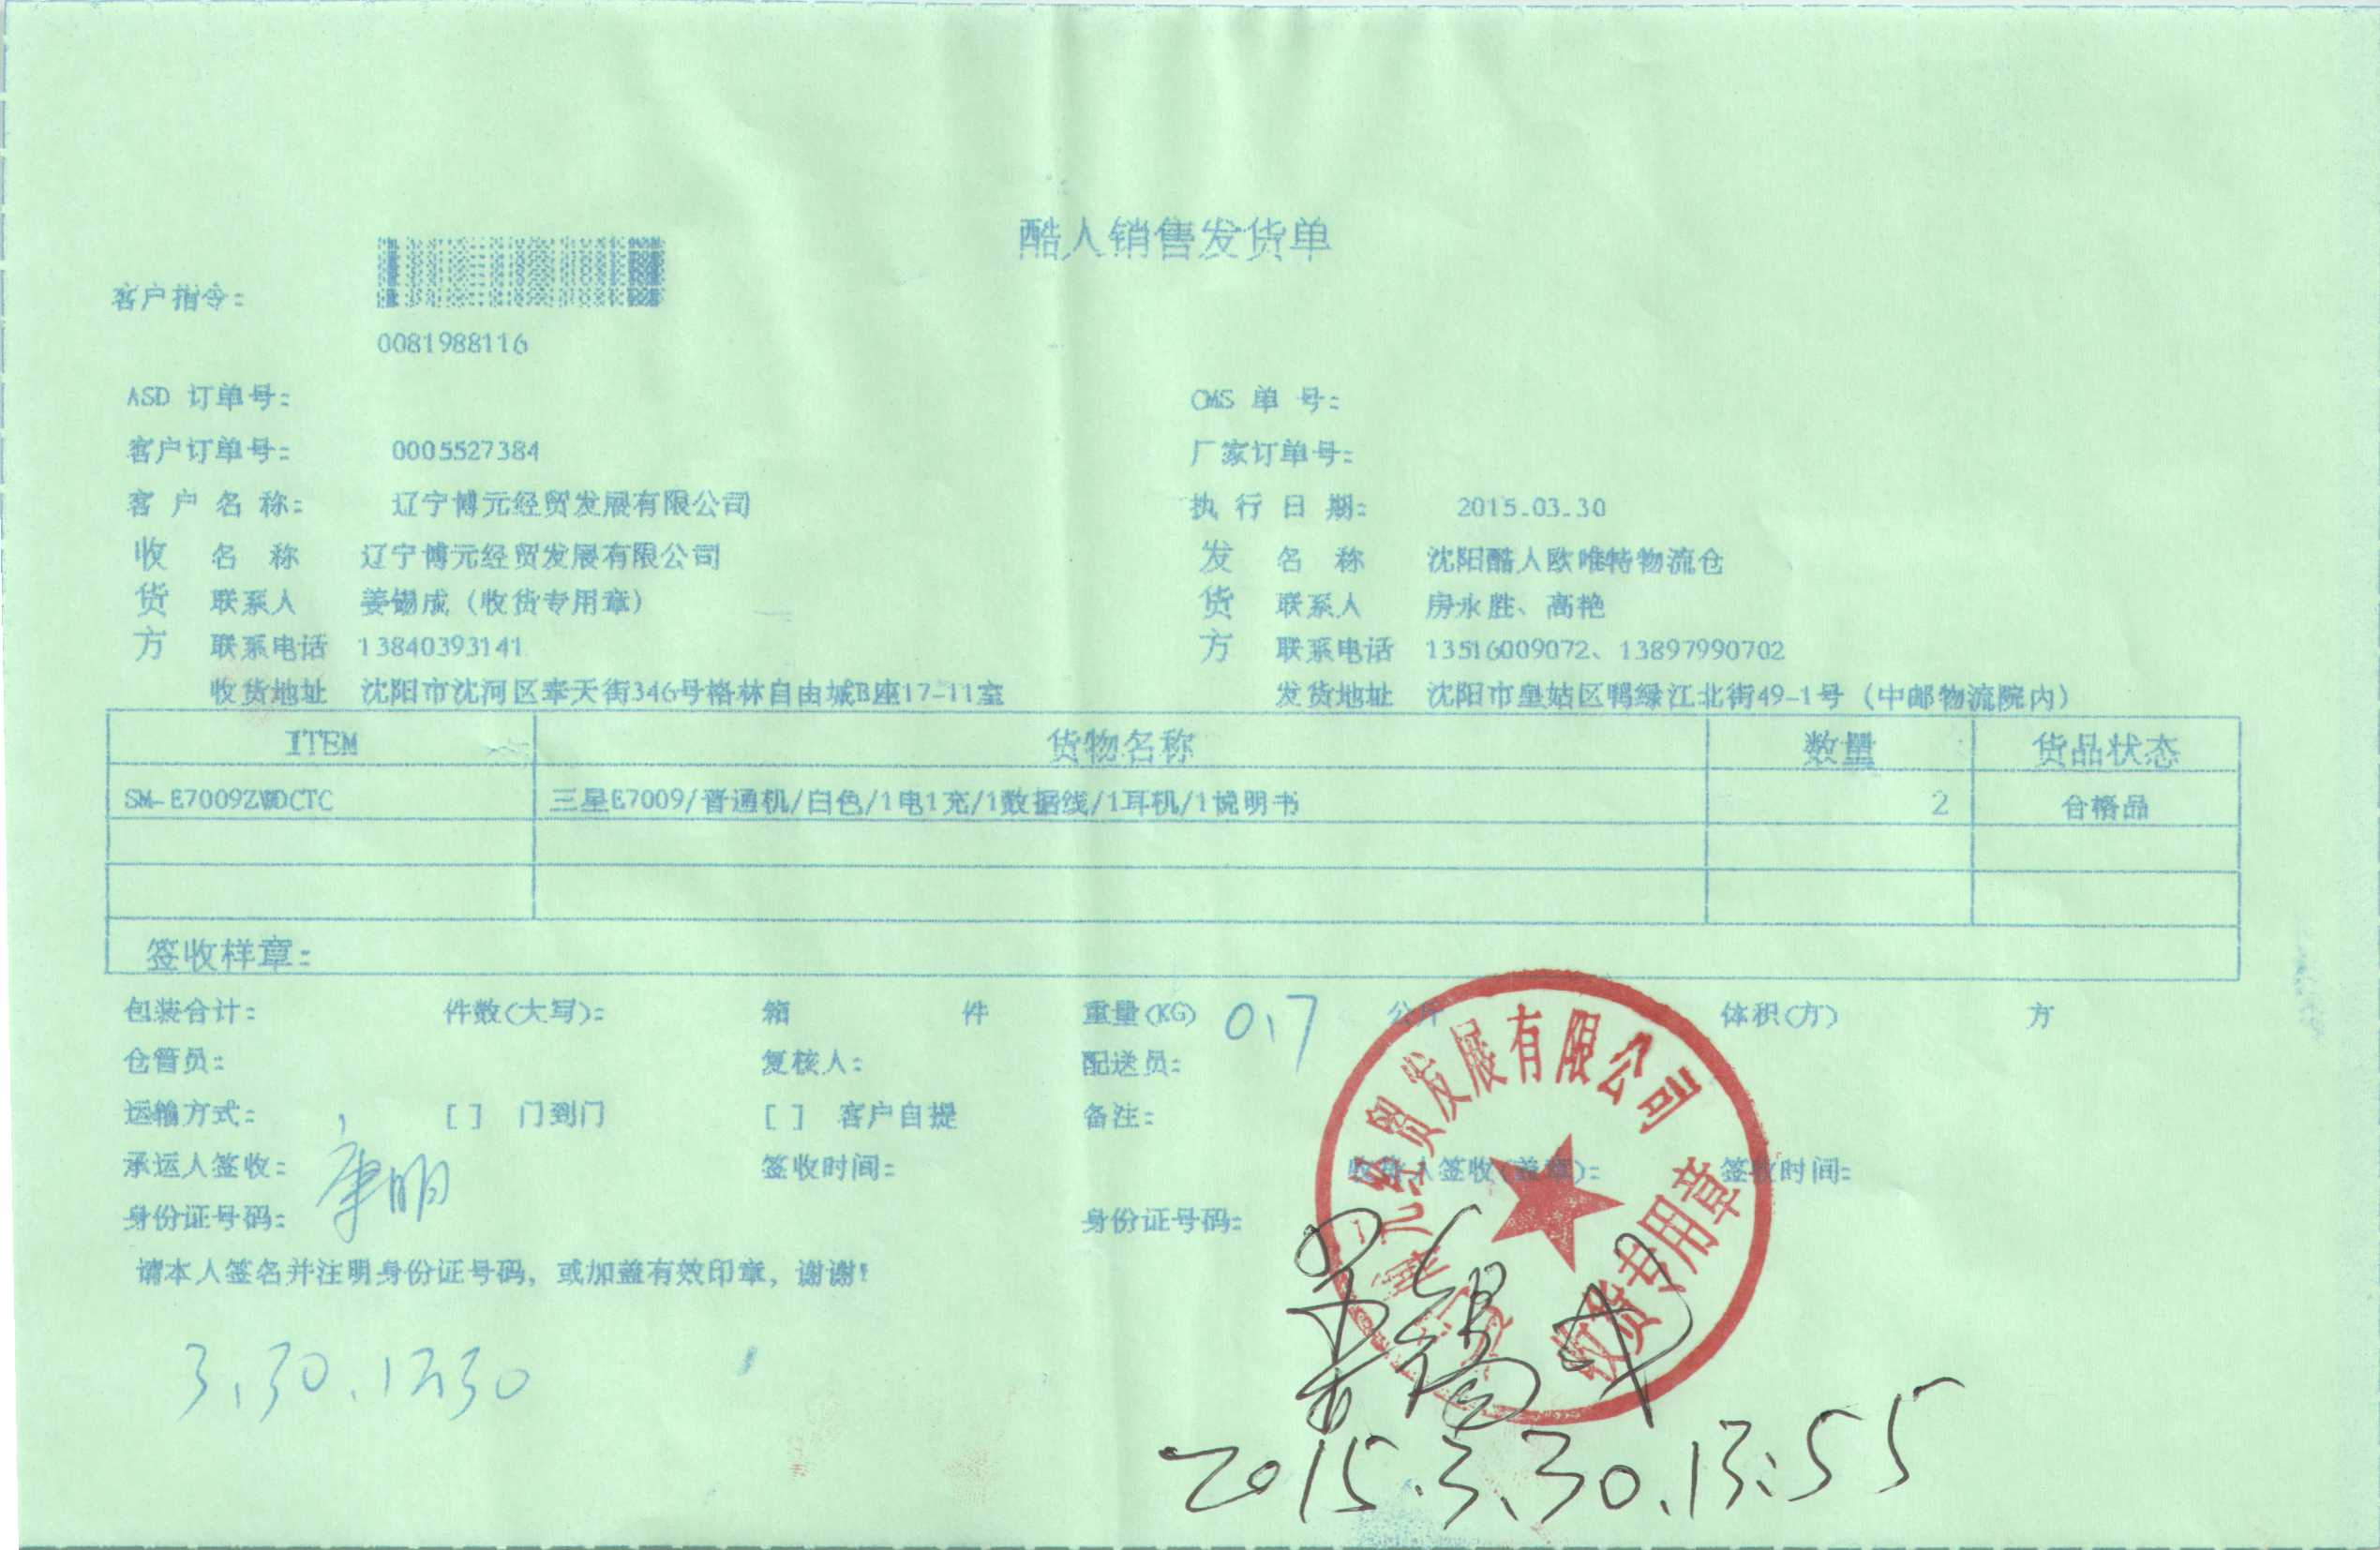 酷人销售发货单
客户指令:
0081988116
ASD 订单号: OMS 单 号:
客户订单号: 0005527384 厂家订单号:
客 户 名 称: 辽宁博元经贸发展有限公司 执 行 日 期: 2015.03.30
收 名 称 辽宁博元经贸发展有限公司 发 名 称 沈阳酷人欧唯特物流仓
货 联系人 姜锡成（收货专用章） 货 联系人 房永胜、高艳
方 联系电话 13840393141 方 联系电话 13516009072、13897990702
收货地址 沈阳市沈河区奉天街346号格林自由城B座17-11室 发货地址 沈阳市皇姑区鸭绿江北街49-1号（中邮物流院内）
ITEM 货物名称 数量 货品状态
SM-E7009ZWDCTC 三星E7009/普通机/白色/1电1充/1数据线/1耳机/1说明书 2 合格品
签收样章:
包装合计: 件数(大写): 箱 件 重量(KG) 0.7 公斤 体积(方) 方
仓管员: 复核人: 配送员:
运输方式: [ ] 门到门 [ ] 客户自提 备注:
承运人签收: 签收时间: 收货人签收(盖章): 签收时间:
身份证号码: 身份证号码:
请本人签名并注明身份证号码, 或加盖有效印章, 谢谢!
元经贸发展有限公司
收货专用章
姜锡成
2015.3.30.13:55